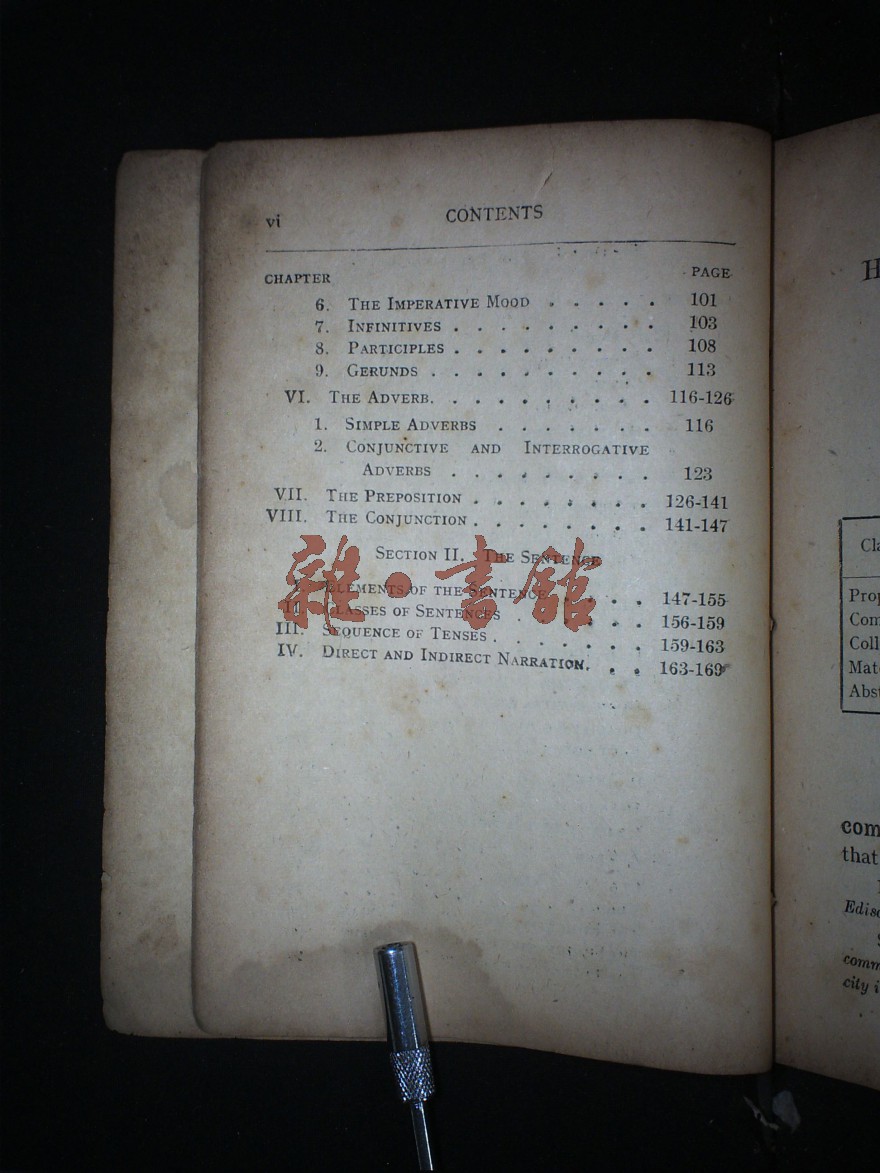 vi CONTENTS
CHAPTER PAGE
6. THE IMPERATIVE MOOD . . . . . 101
7. INFINITIVES . . . . . . . . . 103
8. PARTICIPLES . . . . . . . . . 108
9. GERUNDS . . . . . . . . . . 113
VI. THE ADVERB. . . . . . . . . . 116-126
1. SIMPLE ADVERBS . . . . . . . 116
2. CONJUNCTIVE AND INTERROGATIVE
ADVERBS . . . . . . . . . 123
VII. THE PREPOSITION . . . . . . . . 126-141
VIII. THE CONJUNCTION . . . . . . . . 141-147
SECTION II. THE SENTENCE
I. ELEMENTS OF THE SENTENCE . . . . 147-155
II. CLASSES OF SENTENCES . . . . . . 156-159
III. SEQUENCE OF TENSES . . . . . . . 159-163
IV. DIRECT AND INDIRECT NARRATION. . . 163-169
雜·書館
H
Cla
Prop
Com
Coll
Mat
Abst
com
that
Ediso
comm
city i